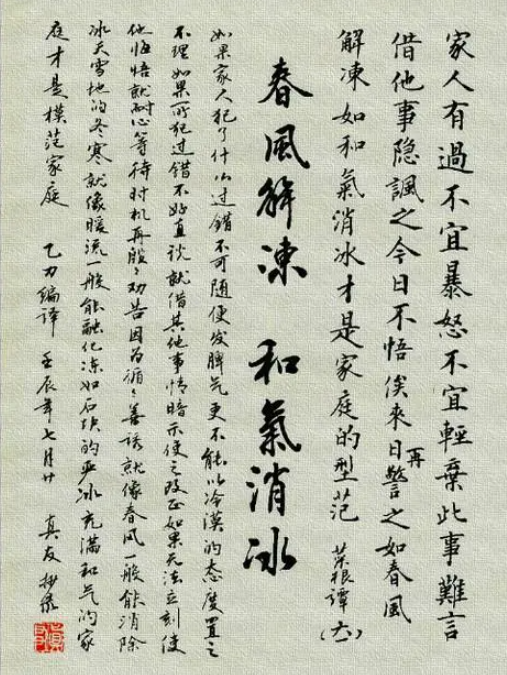 家人有過不宜暴怒不宜輕棄此事難言
借他事隐諷之今日不悟俟來日再警之如春風
解凍如和氣消冰才是家庭的型范 菜根譚
春風解凍 和氣消冰
如果家人犯了什么过錯不可随便发脾气更不能以冷漠的态度置之
不理如果所犯过錯不好直谈就借其他事情暗示使之改正如果无法立刻使
他悔悟就耐心等待时机再殷々劝告因为循々善诱就像春风一般能消除
冰天雪地的冬寒就像暖流一般能融化冻如石块的严冰充满和气的家
庭才是模范家庭 乙力編譯 壬辰年七月廿 真友抄录